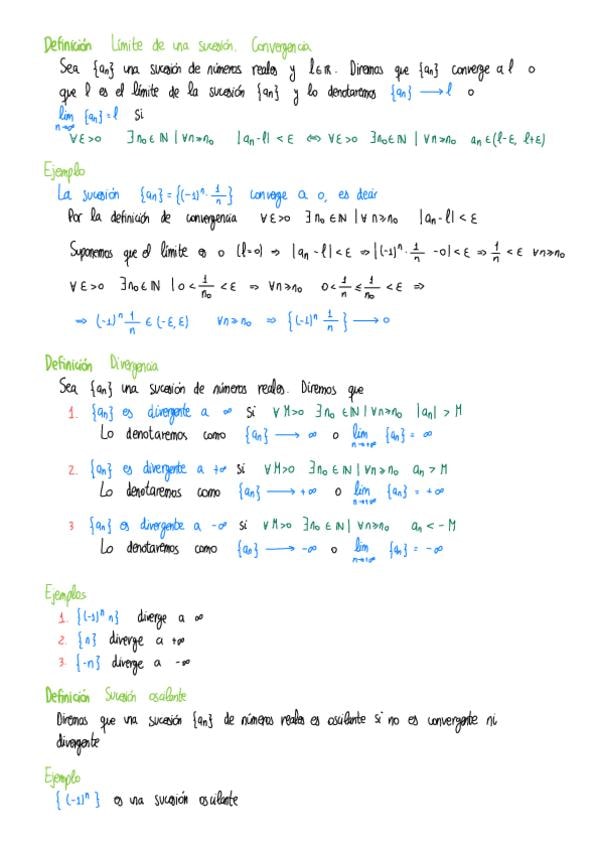 Definición Límite de una sucesión. Convergencia
Sea {aₙ} una sucesión de números reales y l∈ℝ. Diremos que {aₙ} converge a l o
que l es el límite de la sucesión {aₙ} y lo denotaremos {aₙ} ⟶ l o
lim {aₙ} = l si
n→∞
∀ε>0 ∃n₀∈ℕ | ∀n≥n₀ |aₙ-l| < ε ⇔ ∀ε>0 ∃n₀∈ℕ | ∀n≥n₀ aₙ∈(l-ε, l+ε)
Ejemplo
La sucesión {aₙ} = {(-1)ⁿ · 1/n} converge a 0, es decir
Por la definición de convergencia ∀ε>0 ∃n₀∈ℕ | ∀n≥n₀ |aₙ-l| < ε
Suponemos que el límite es 0 (l=0) ⇒ |aₙ-l| < ε ⇒ |(-1)ⁿ · 1/n - 0| < ε ⇒ 1/n < ε ∀n≥n₀
∀ε>0 ∃n₀∈ℕ | 0 < 1/n₀ < ε ⇒ ∀n≥n₀ 0 < 1/n ≤ 1/n₀ < ε ⇒
⇒ (-1)ⁿ 1/n ∈ (-ε, ε) ∀n≥n₀ ⇒ {(-1)ⁿ 1/n} ⟶ 0
Definición Divergencia
Sea {aₙ} una sucesión de números reales. Diremos que
1. {aₙ} es divergente a ∞ si ∀M>0 ∃n₀∈ℕ | ∀n≥n₀ |aₙ| > M
Lo denotaremos como {aₙ} ⟶ ∞ o lim {aₙ} = ∞
n→+∞
2. {aₙ} es divergente a +∞ si ∀M>0 ∃n₀∈ℕ | ∀n≥n₀ aₙ > M
Lo denotaremos como {aₙ} ⟶ +∞ o lim {aₙ} = +∞
n→+∞
3 {aₙ} es divergente a -∞ si ∀M>0 ∃n₀∈ℕ | ∀n≥n₀ aₙ < -M
Lo denotaremos como {aₙ} ⟶ -∞ o lim {aₙ} = -∞
n→+∞
Ejemplos
1. {(-1)ⁿ n} diverge a ∞
2. {n} diverge a +∞
3. {-n} diverge a -∞
Definición Sucesión oscilante
Diremos que una sucesión {aₙ} de números reales es oscilante si no es convergente ni
divergente
Ejemplo
{(-1)ⁿ} es una sucesión oscilante